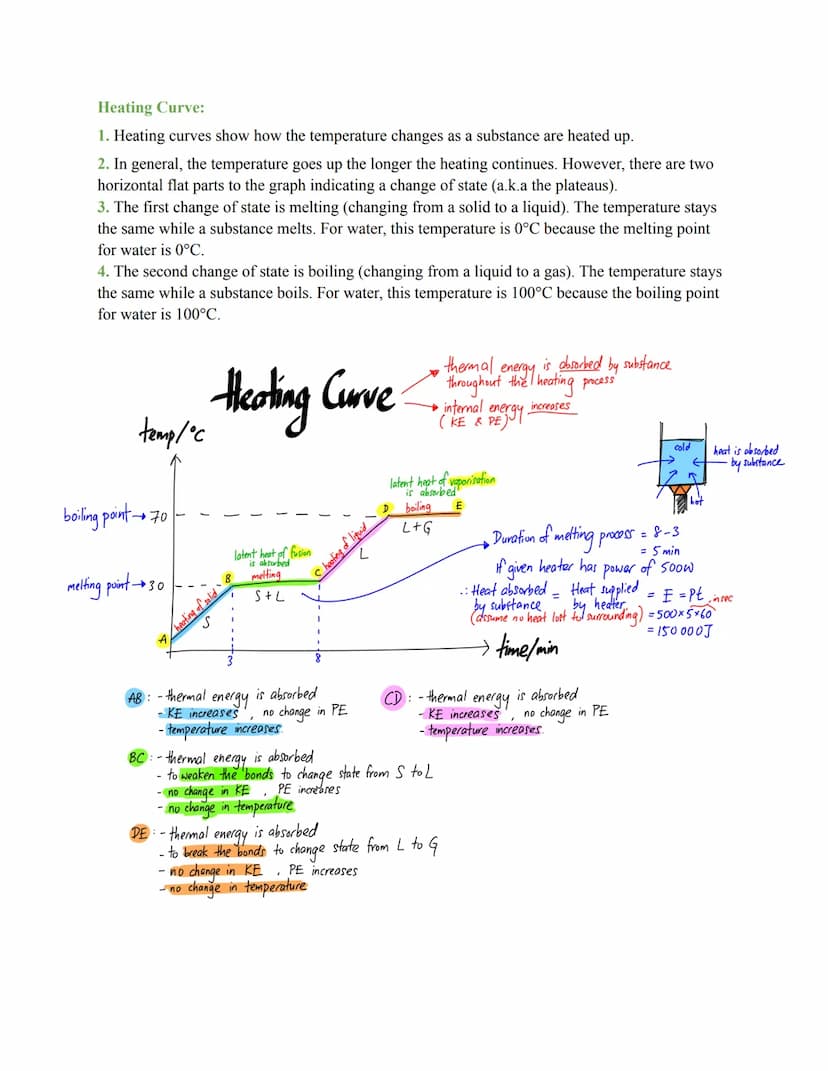 Heating Curve:
1. Heating curves show how the temperature changes as a substance are heated up.
2. In general, the temperature goes up the longer the heating continues. However, there are two
horizontal flat parts to the graph indicating a change of state (a.k.a the plateaus).
3. The first change of state is melting (changing from a solid to a liquid). The temperature stays
the same while a substance melts. For water, this temperature is 0°C because the melting point
for water is 0°C.
4. The second change of state is boiling (changing from a liquid to a gas). The temperature stays
the same while a substance boils. For water, this temperature is 100°C because the boiling point
for water is 100°C.
Heating Curve
thermal energy is absorbed by substance
throughout the heating process
internal energy increases
(KE & PE)
temp/°C
cold
heat is absorbed
by substance
hot
latent heat of vaporisation
is absorbed
D boiling E
L+G
boiling point → 70
heating of liquid
L
latent heat of fusion
is absorbed
B melting C
S+L
melting point → 30
heating of solid
S
A
3
8
time/min
Duration of melting process = 8-3
= 5 min
If given heater has power of 500W
∴ Heat absorbed = Heat supplied = E = Pt in sec
by substance by heater = 500×5×60
(assume no heat lost to surrounding) = 150 000J
AB : - thermal energy is absorbed
- KE increases , no change in PE
- temperature increases
CD : - thermal energy is absorbed
- KE increases , no change in PE
- temperature increases.
BC : - thermal energy is absorbed
- to weaken the bonds to change state from S to L
- no change in KE , PE increbses
- no change in temperature
DE : - thermal energy is absorbed
- to break the bonds to change state from L to G
- no change in KE , PE increases
- no change in temperature